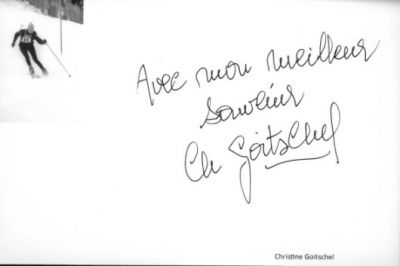 Avec mon meilleur
souvenir
Ch Goitschel
Christine Goitschel